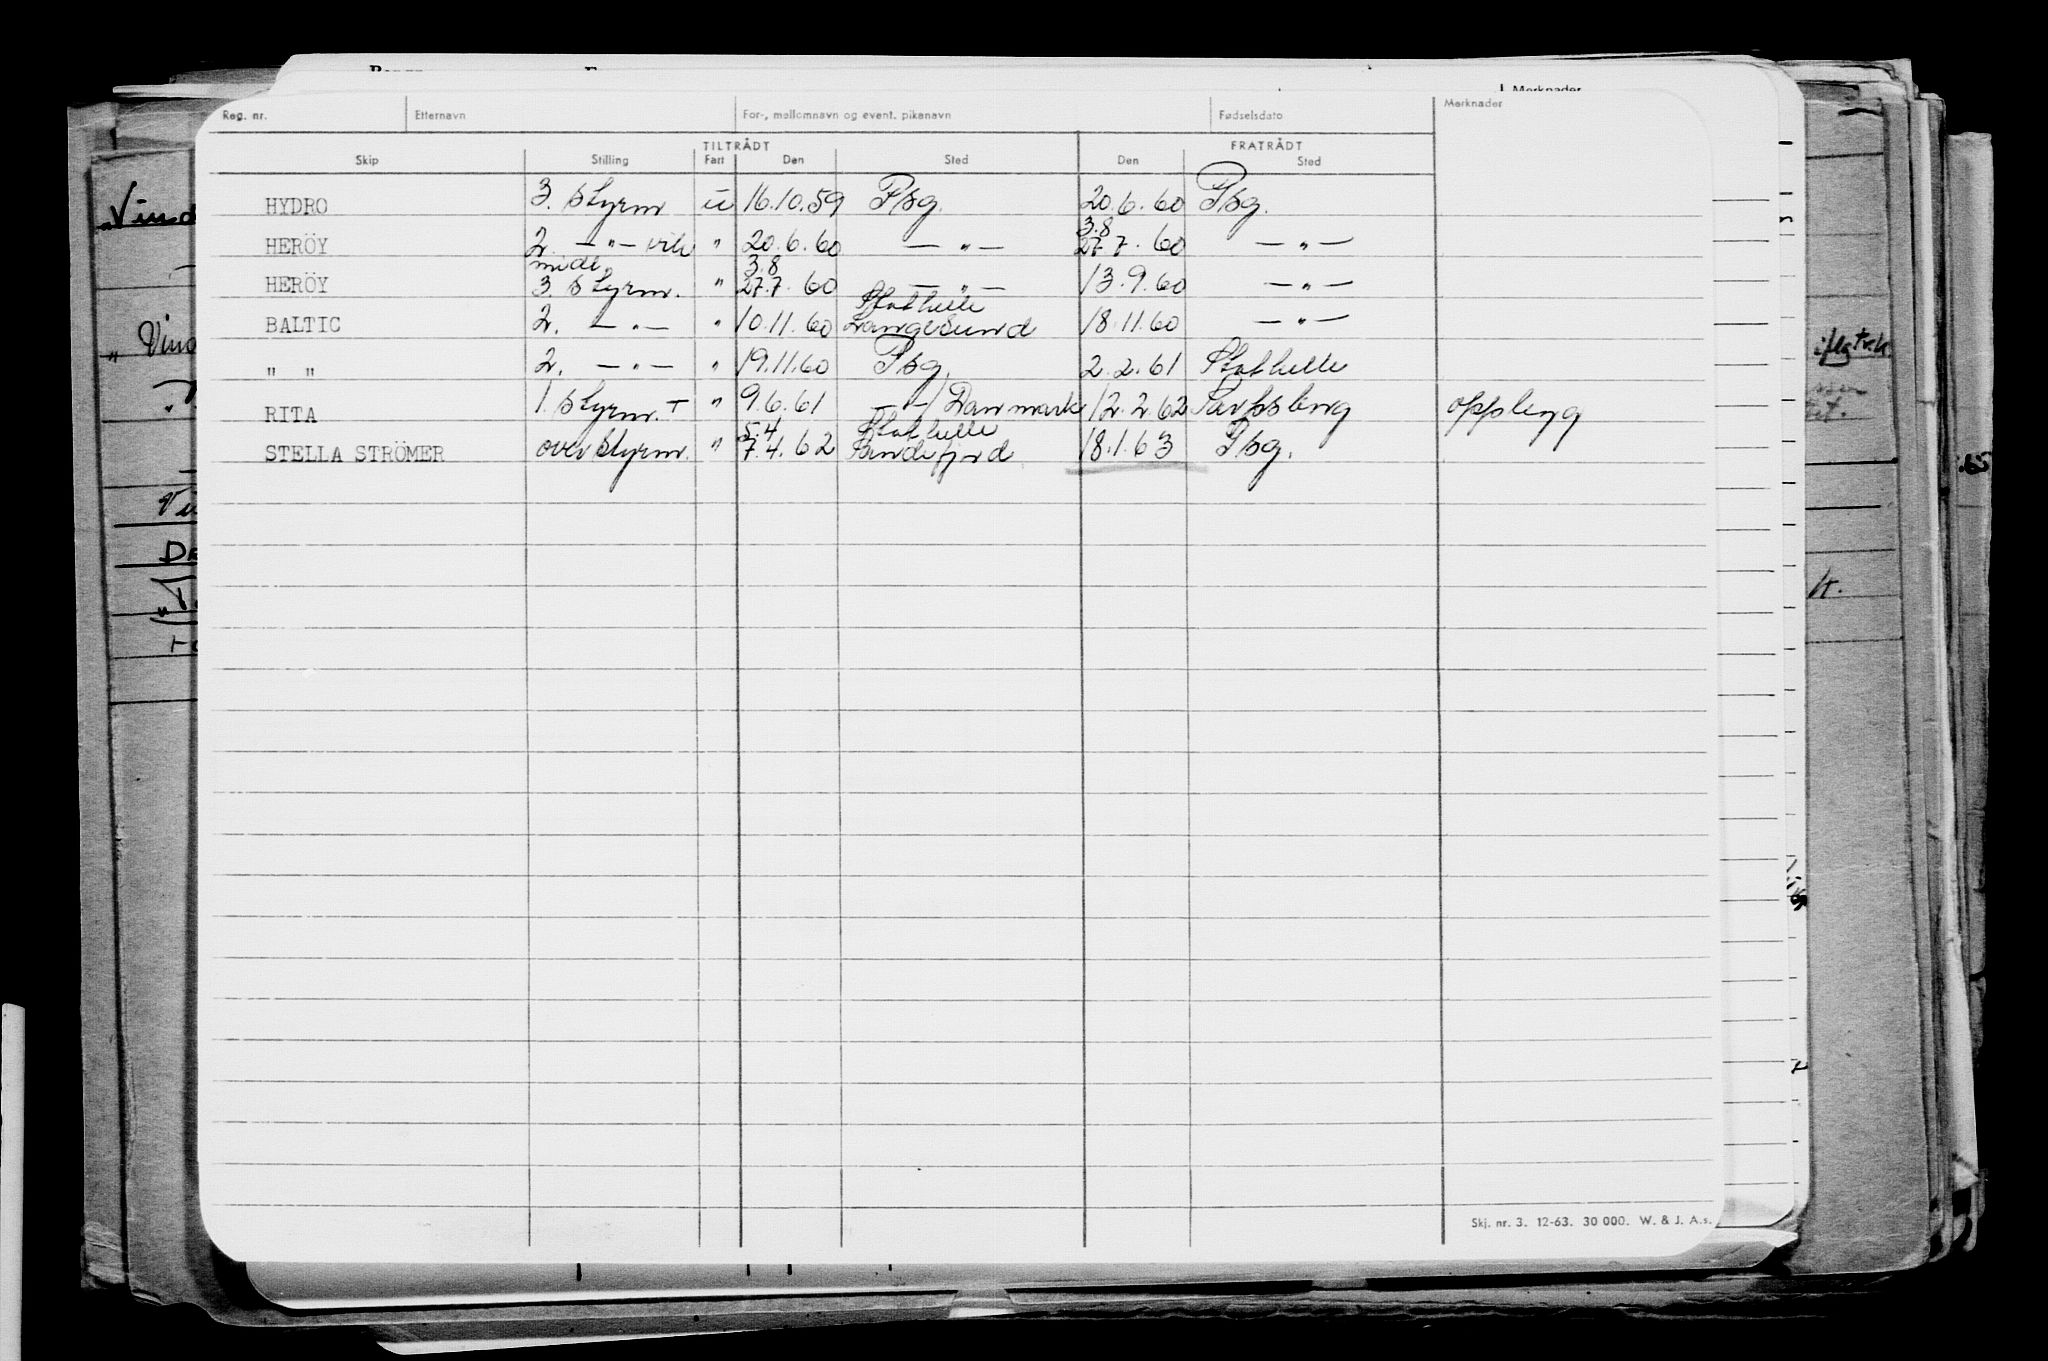 Reg. nr. Etternavn For-, mellomnavn og event. pikenavn Fødselsdato Merknader
TILTRÅDT FRATRÅDT
Skip Stilling Fart Den Sted Den Sted
HYDRO 3. styrm u 16.10.59 Psg. 20.6.60 Psg.
3.8
HERÖY 2. —"— vik " 20.6.60 —"— 27.7.60 —"—
midl. 3.8
HERÖY 3. styrm. " 27.7.60 —"— 13.9.60 —"—
Stathelle
BALTIC 2. —"— " 10.11.60 Langesund 18.11.60 —"—
" " 2. —"— " 19.11.60 Psg. 2.2.61 Stathelle
RITA 1. styrm. + " 9.6.61 —"—/Danmark 12.2.62 Sarpsborg opplegg
5.4 Stathelle
STELLA STRÖMER overstyrm. " 7.4.62 Sandefjord 18.1.63 Psg.
Skj. nr. 3. 12-63. 30 000. W. & J. A.s.
Merknader
Vind
" Vind